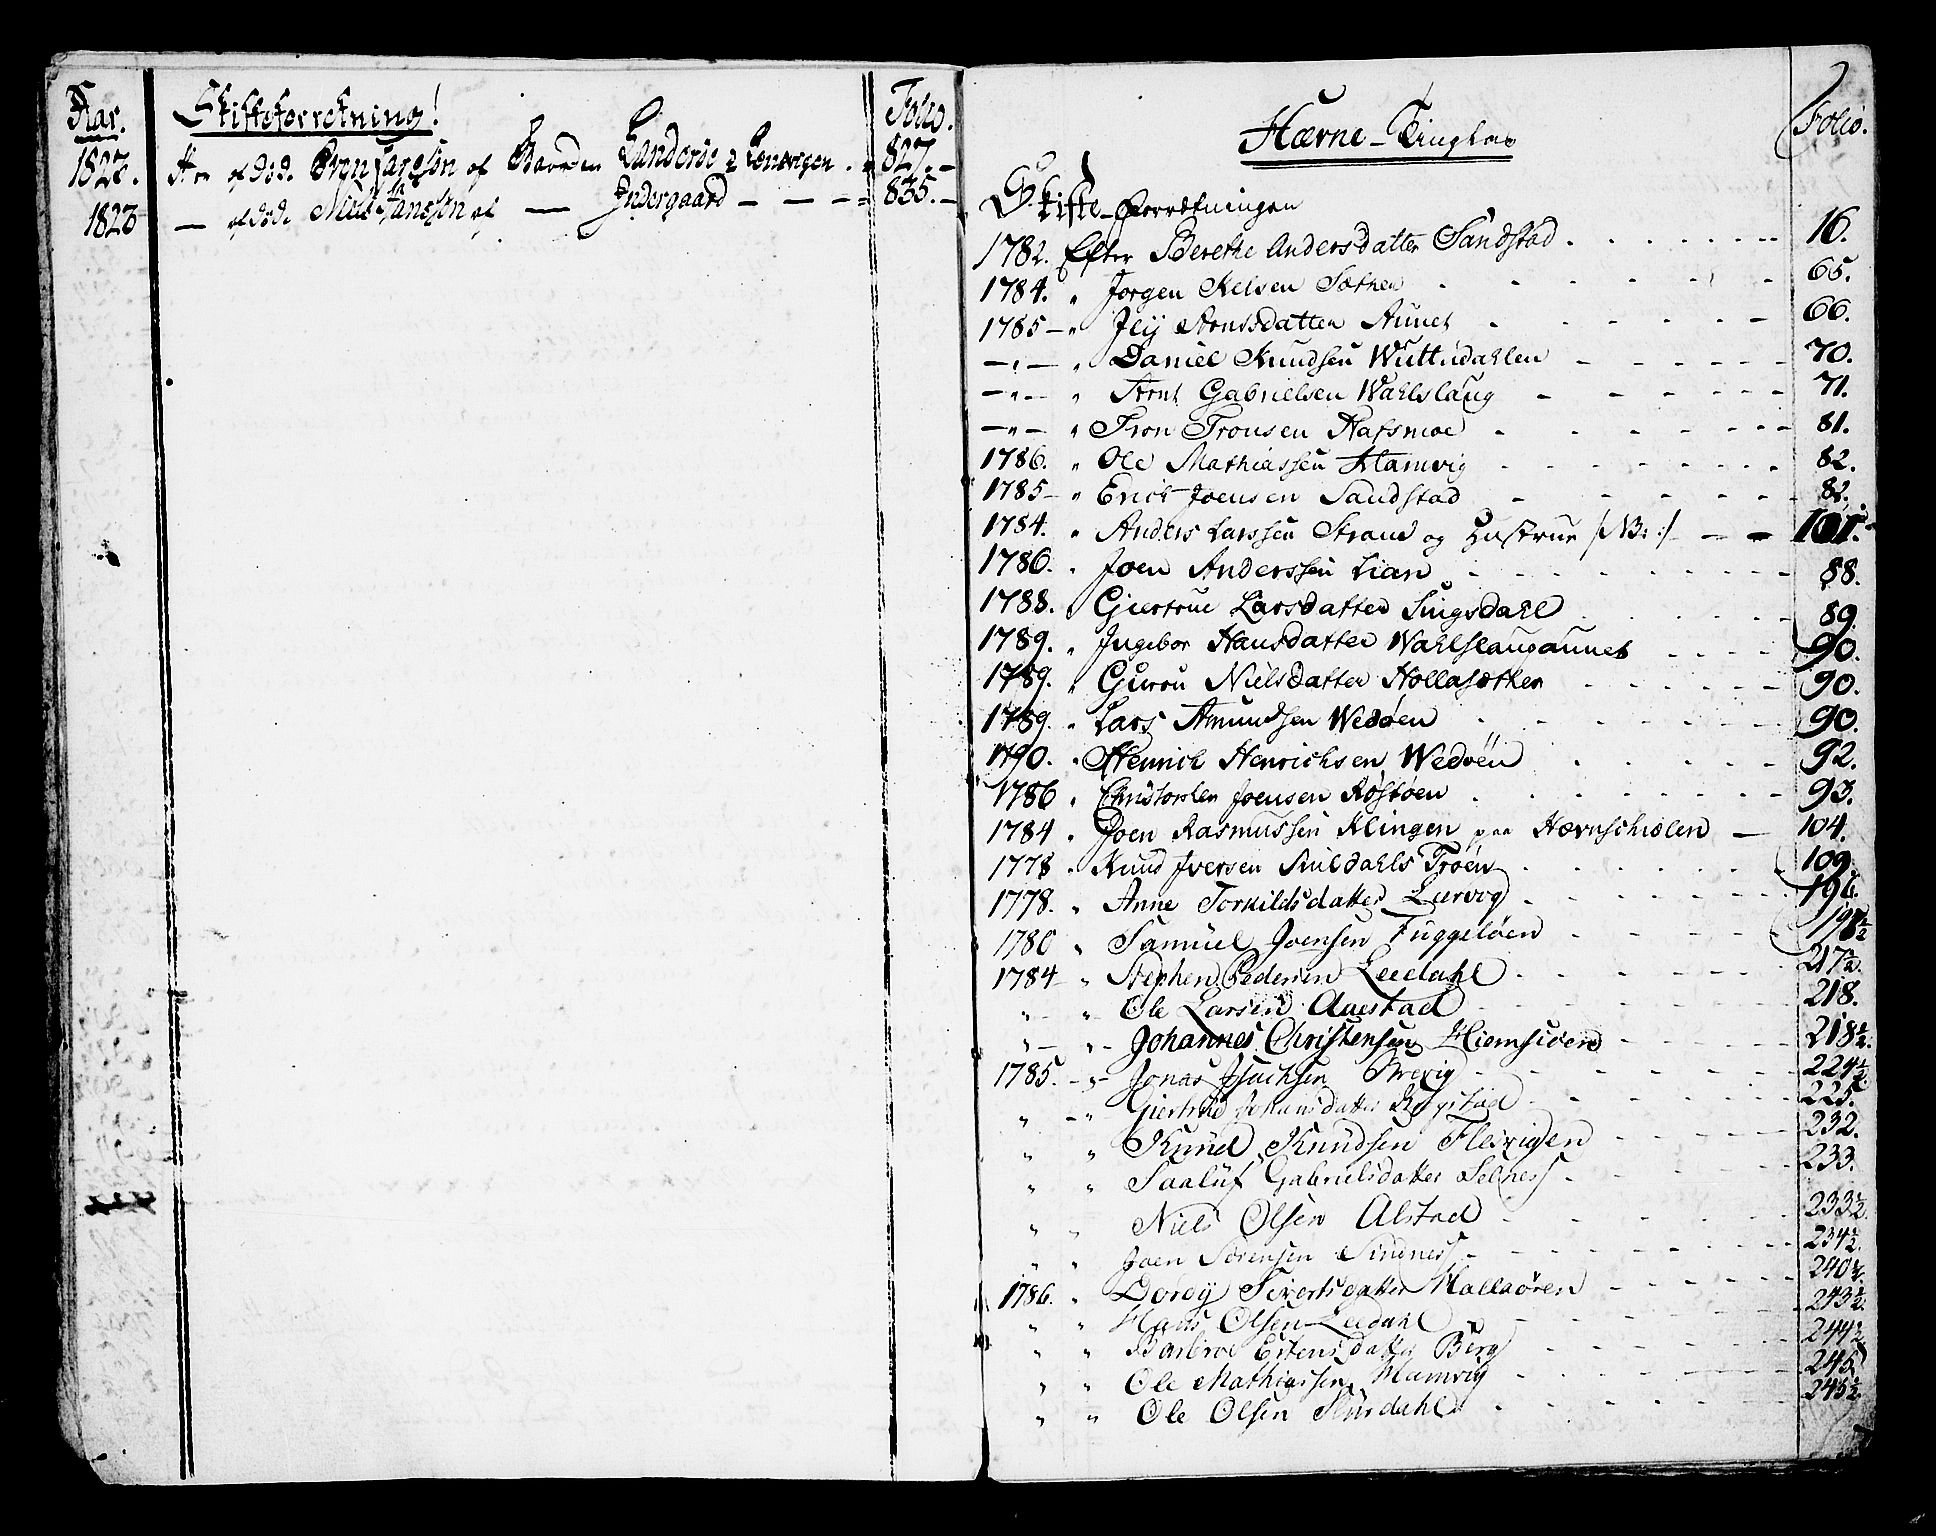 Aar. Skifteforretning! Folio.
1827. af død. af 827.
1823 — af døde af — Indergaard — — — 835.
Hærne-Tinglav Folio.
Skifte-Forretningen
1782. Efter Berethe Andersdatter Sandstad 16.
1784. " Jørgen Nelsen Sæther 65.
1785 — " Arntsdatter Aunet 66.
— " — " Daniel Knudsen Wuttudahlen 70.
— " — " Arnt Gabrielsen Wahlslaug 71.
— " — " Tron Tronsen Hafsmoe 81.
1786. " Ole Mathiassen Hamvig 82.
1785 — " Erich Joensen Sandstad 82.
1784. " Anders Larssen Strand og Hustrue /NB:/ 101.
1786. " Joen Anderssen Lian 88.
1788. " Giertrue Larsdatter Singsdahl 89.
1789. " Ingebor Hansdatter Wahlslaugaunet 90.
1789. " Gurru Nielsdatter Hollasæther 90.
1789. " Lars Amundsen Wedøen 90.
1790. " Henrich Henrichsen Wedøen 92.
1786 " Joensen Røstøen 93.
1784 " Joen Rasmussen Klingen paa Hærnschiølen — 104.
1778 " Knud Iversen Trøen 109.
1778. " Anne Torkildsdatter Lervog 196.
1780 " Samuel Joensen Fuggeløen 198½
1784 — " Stephen Pedersen Leedahl 217½
" — " Ole Larsen Auestad 218.
" — " — Johannes Christensen Hiemsiøen 218½
1785. — " — Jonas Isachsen Brevig 224½
" — " Giertrue Johansdatter Rogstad 225.
" " Knud Knudsen Flesvigen 232.
" " Gabrielsdatter Selness 233.
" " Niels Olsen Alstad 233½
" " Joen Sørensen Sinness 234½
1786. " Dordy Sivertsdatter Hallaøren 240½
" " Hans Olsen Leedahl 243½
" " Barbroe Estensdatter Berg 244½
" " Ole Mathiassen Hamvig 245
" " Ole Olsen 245½